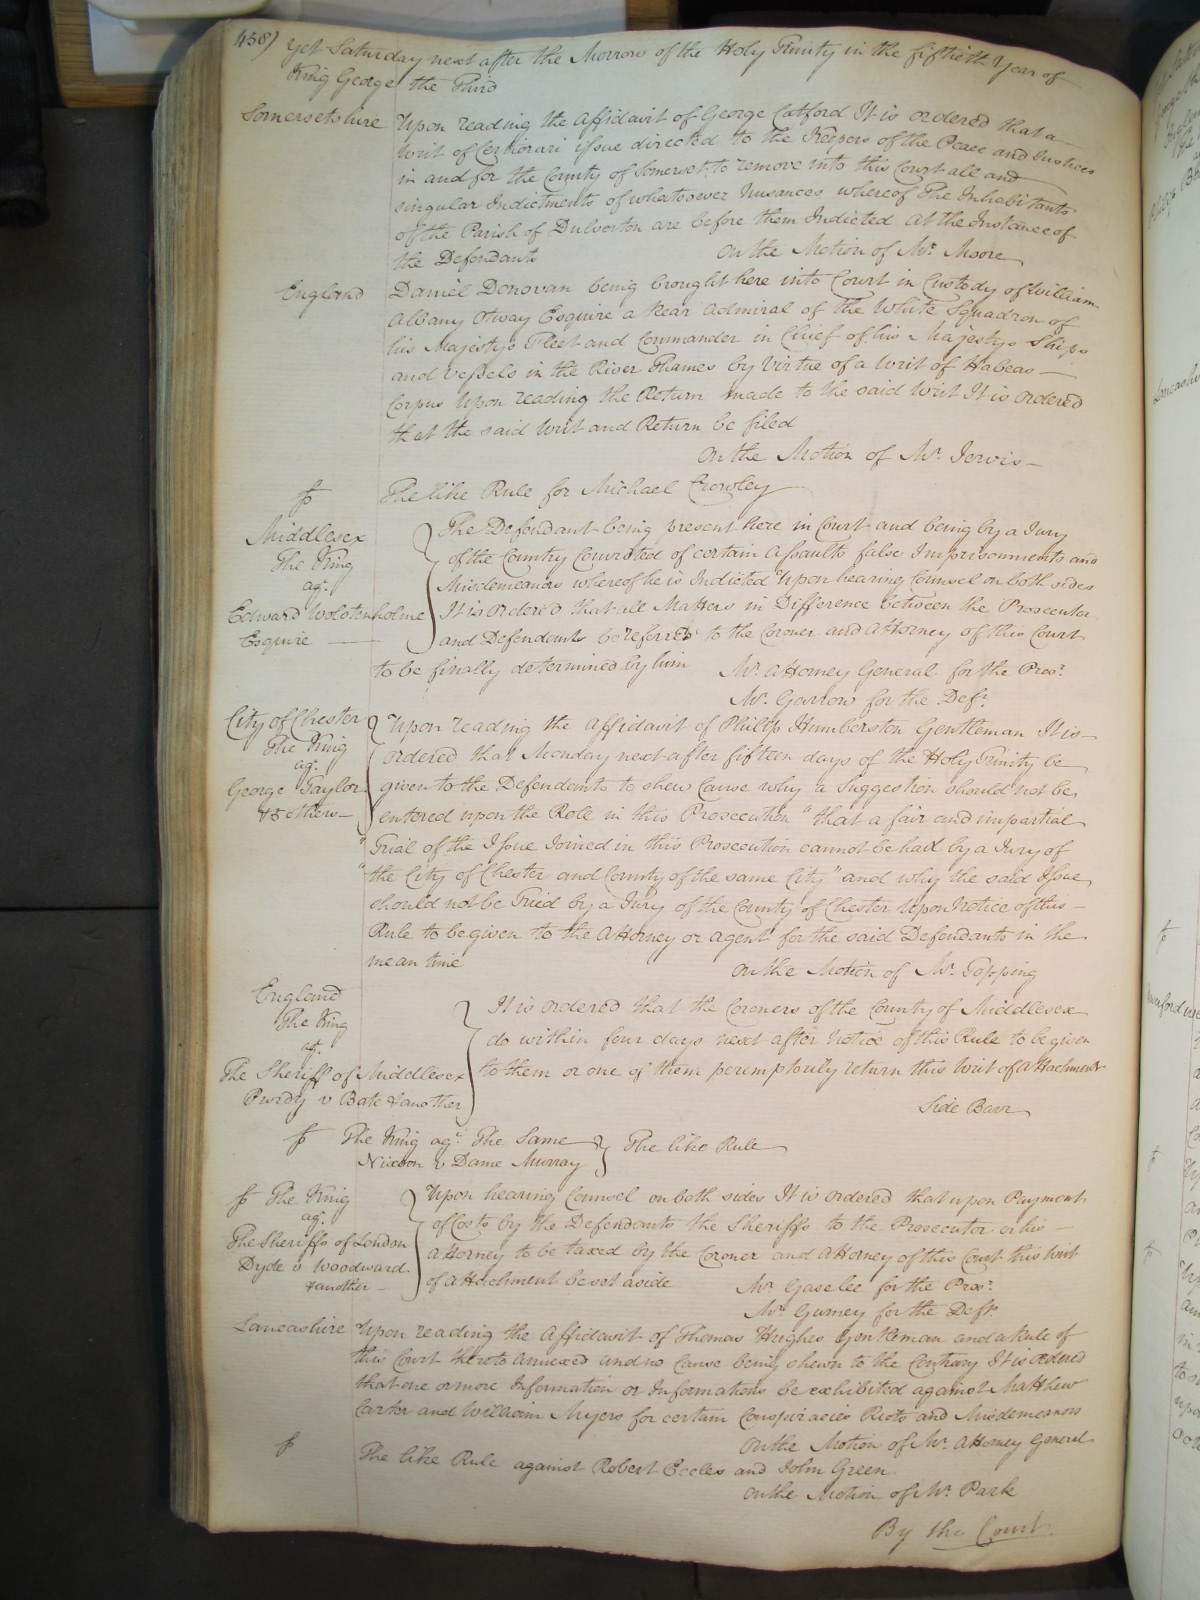 438)
Yet Saturday next after the Morrow of the Holy Trinity in the fiftieth Year of
King George the Third
Somersetshire Upon reading the Affidavit of George Catford It is ordered that a
Writ of Certiorari issue directed to the Keepers of the Peace and Justices
in and for the County of Somerset, to remove into this Court all and
singular Indictments of whatsoever Nusances whereof The Inhabitants
of the Parish of Dulverton are before them Indicted At the Instance of
the Defendants On the Motion of Mr. Moore
England Daniel Donovan being brought here into Court in Custody of William
Albany Otway Esquire a Rear Admiral of the White Squadron of
his Majestys Fleet and Commander in Chief of his Majestys Ships
and Vessels in the River Thames by Virtue of a Writ of Habeas
Corpus Upon reading the Return made to the said Writ It is ordered
that the said Writ and Return be filed
On the Motion of Mr. Jervis
The like Rule for Michael Crowley
Middlesex
The King
agt.
Edward Wolstenholme
Esquire
The Defendant being present here in Court and being by a Jury
of the Country Convicted of certain Assaults false Imprisonments and
Misdemeanors whereof he is Indicted Upon hearing Counsel on both sides
It is ordered that all Matters in Difference between the Prosecutor
and Defendants be referred to the Coroner and Attorney of this Court
to be finally determined by him Mr. Attorney General for the Pros:r
Mr. Garrow for the Def:t
City of Chester
The King
agt.
George Taylor
& 5 others
Upon reading the Affidavit of Philip Humberston Gentleman It is
ordered that Monday next after fifteen days of the Holy Trinity be
given to the Defendants to shew Cause why a Suggestion should not be
entered upon the Roll in this Prosecution "that a fair and impartial
"Trial of the Issue Joined in this Prosecution cannot be had by a Jury of
"the City of Chester and County of the same City" and why the said Issue
should not be Tried by a Jury of the County of Chester Upon Notice of this
Rule to be given to the Attorney or Agent for the said Defendants in the
mean time On the Motion of Mr. Topping
England
The King
agt.
The Sheriff of Middlesex
Purdy v Bate & another
It is ordered that the Coroners of the County of Middlesex
do within four days next after Notice of this Rule to be given
to them or one of them peremptorily return this Writ of Attachment
Side Barr
The King agt. The Same
Nixon v Dame Murray
The like Rule
The King
agt.
The Sheriffs of London
Dyde v Woodward
& another
Upon hearing Counsel on both sides It is ordered that upon Payment
of Costs by the Defendants the Sheriffs to the Prosecutor or his
Attorney to be taxed by the Coroner and Attorney of this Court this Writ
of Attachment be set aside Mr. Gaselee for the Pros:r
Mr. Gurney for the Defts.
Lancashire Upon reading the Affidavit of Thomas Hughes Gentleman and a Rule of
this Court thereto annexed and no Cause being shewn to the Contrary It is ordered
that one or more Information or Informations be exhibited against Matthew
Carter and William Myers for certain Conspiracies Riots and Misdemeanors
On the Motion of Mr. Attorney General
The like Rule against Robert Eccles and John Green
On the Motion of Mr. Park
By the Court